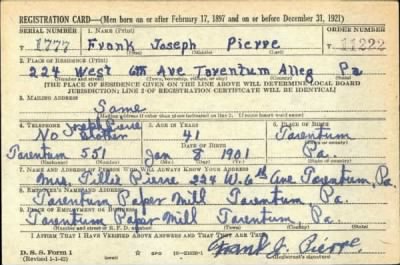 REGISTRATION CARD—(Men born on or after February 17, 1897 and on or before December 31, 1921)
SERIAL NUMBER 1. NAME (Print) ORDER NUMBER
T 1777 Frank Joseph Pierre 11222
(First) (Middle) (Last)
2. PLACE OF RESIDENCE (Print)
224 West 6th Ave Tarentum Alleg Pa
(Number and street) (Town, township, village, or city) (County) (State)
[THE PLACE OF RESIDENCE GIVEN ON THE LINE ABOVE WILL DETERMINE LOCAL BOARD
JURISDICTION; LINE 2 OF REGISTRATION CERTIFICATE WILL BE IDENTICAL]
3. MAILING ADDRESS
Same
(Mailing address if other than place indicated on line 2. If same insert word same)
4. TELEPHONE 5. AGE IN YEARS 6. PLACE OF BIRTH
Joseph Pierre
No Brother 41 Tarentum
DATE OF BIRTH (Town or county)
Tarentum 551 Jan 8 1901 Pa.
(Exchange) (Number) (Mo.) (Day) (Yr.) (State or country)
7. NAME AND ADDRESS OF PERSON WHO WILL ALWAYS KNOW YOUR ADDRESS
Mrs. Tillie Pierre 224 W. 6th Ave Tarentum, Pa.
8. EMPLOYER'S NAME AND ADDRESS
Tarentum Paper Mill Tarentum, Pa.
9. PLACE OF EMPLOYMENT OR BUSINESS
Tarentum Paper Mill Tarentum, Pa.
(Number and street or R. F. D. number) (Town) (County) (State)
I AFFIRM THAT I HAVE VERIFIED ABOVE ANSWERS AND THAT THEY ARE TRUE.
D. S. S. Form 1
(Revised 1-1-42) GPO Frank J. Pierre
(Registrant's signature)